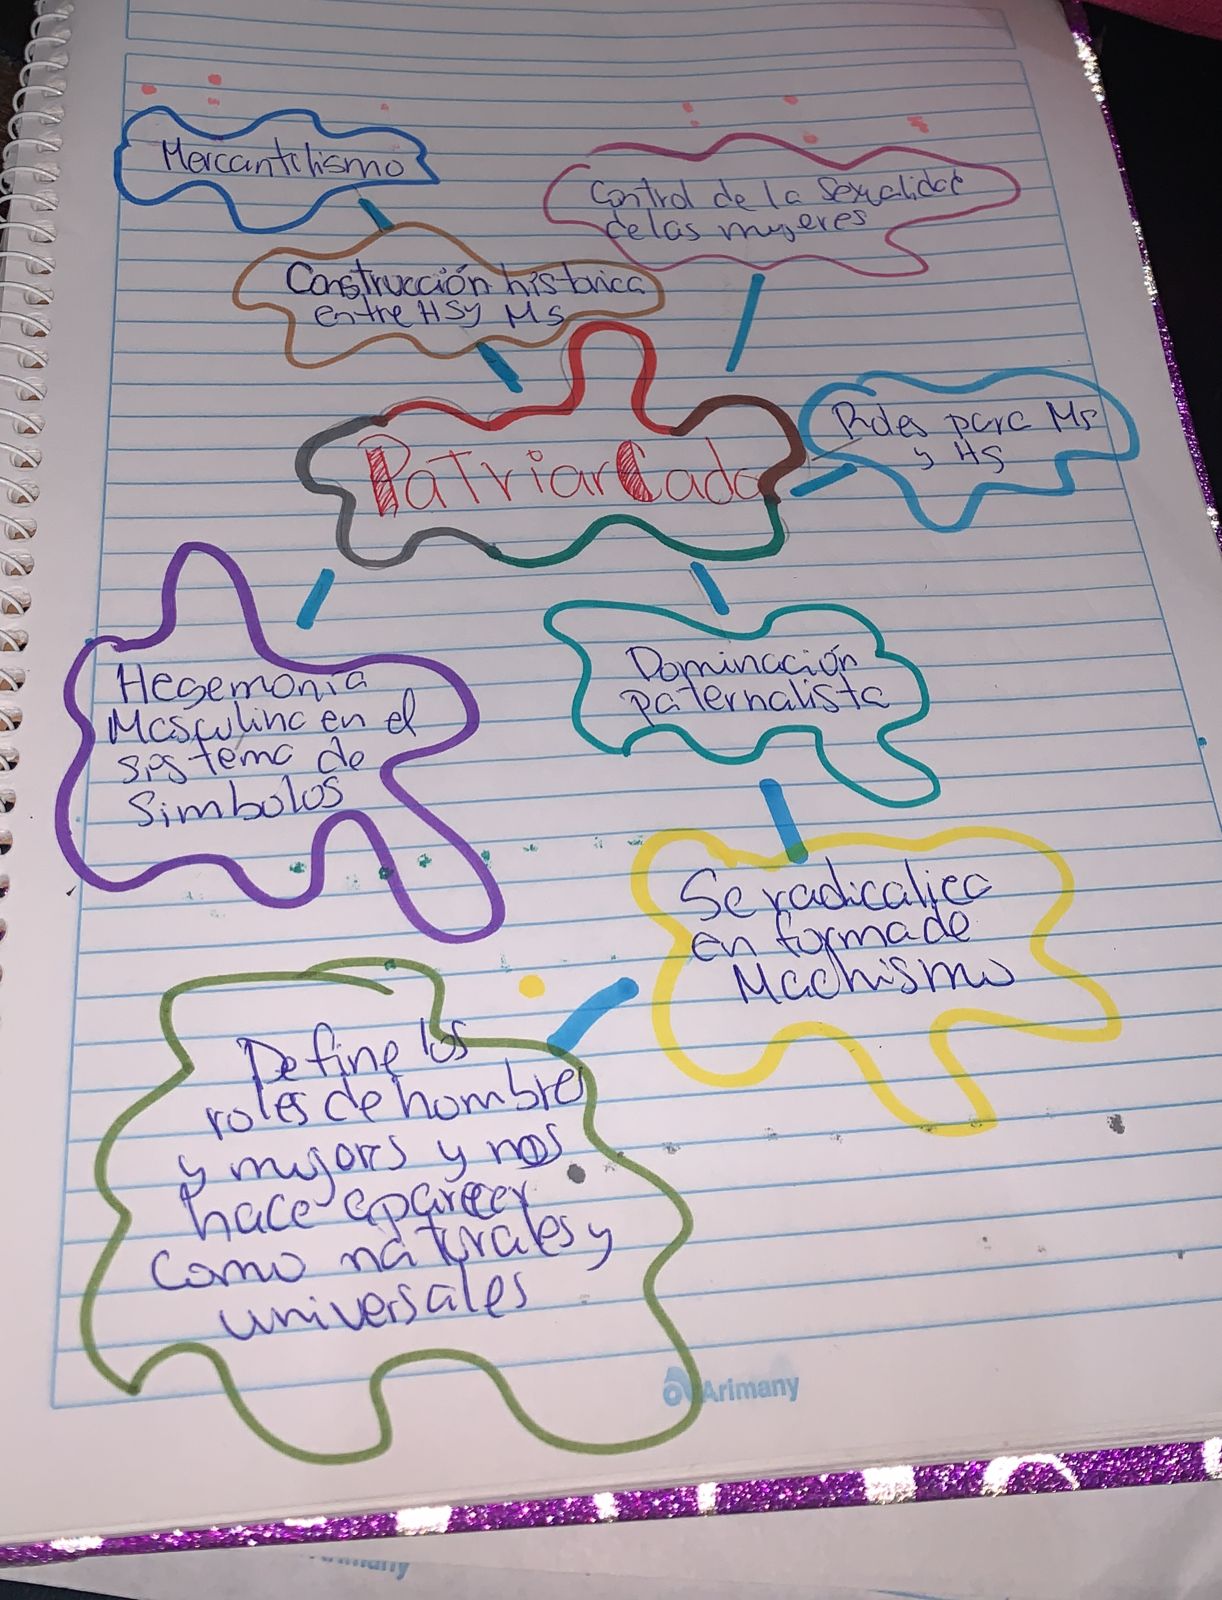 Mercantilismo
Control de la Sexualidad
de las mujeres
Construcción historica
entre HS y MS
PaTriarCado
Roles para Ms
y HS
Hegemonia
Masculina en el
sistema de
Simbolos
Dominación
paternalista
Se radicaliza
en forma de
Machismo
Define los
roles de hombres
y mujeres y nos
hace aparecer
Como naturales y
universales
Arimany
Arimany